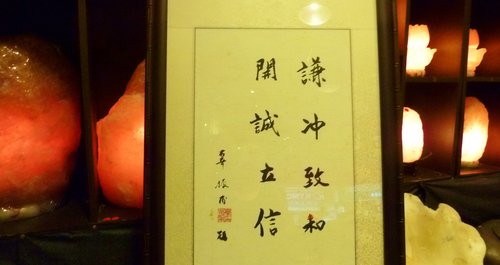 謙冲致和
開誠立信